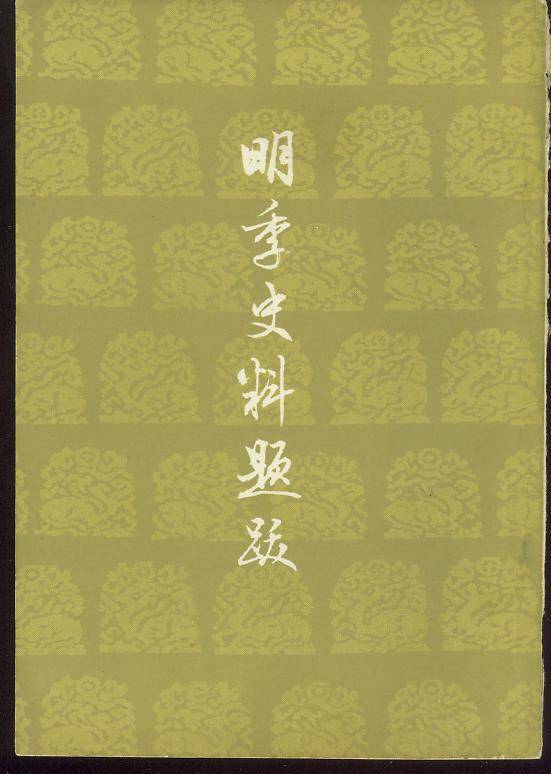 明季史料题跋